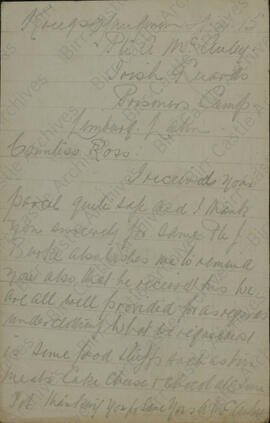 Private McAuley
Irish Guards
Prisoners Camp
Limburg Lahn
Countess Ross
I received your
parcel quite safe and I thank
you sincerely for same Pte J
Burke also wishes me to remind
you also that he received his we
are all well provided for as regards
underclothing what be required
is some food stuffs such as tin
meats Cake Cheese + Chocolate
thanking you
Birr Castle Archives